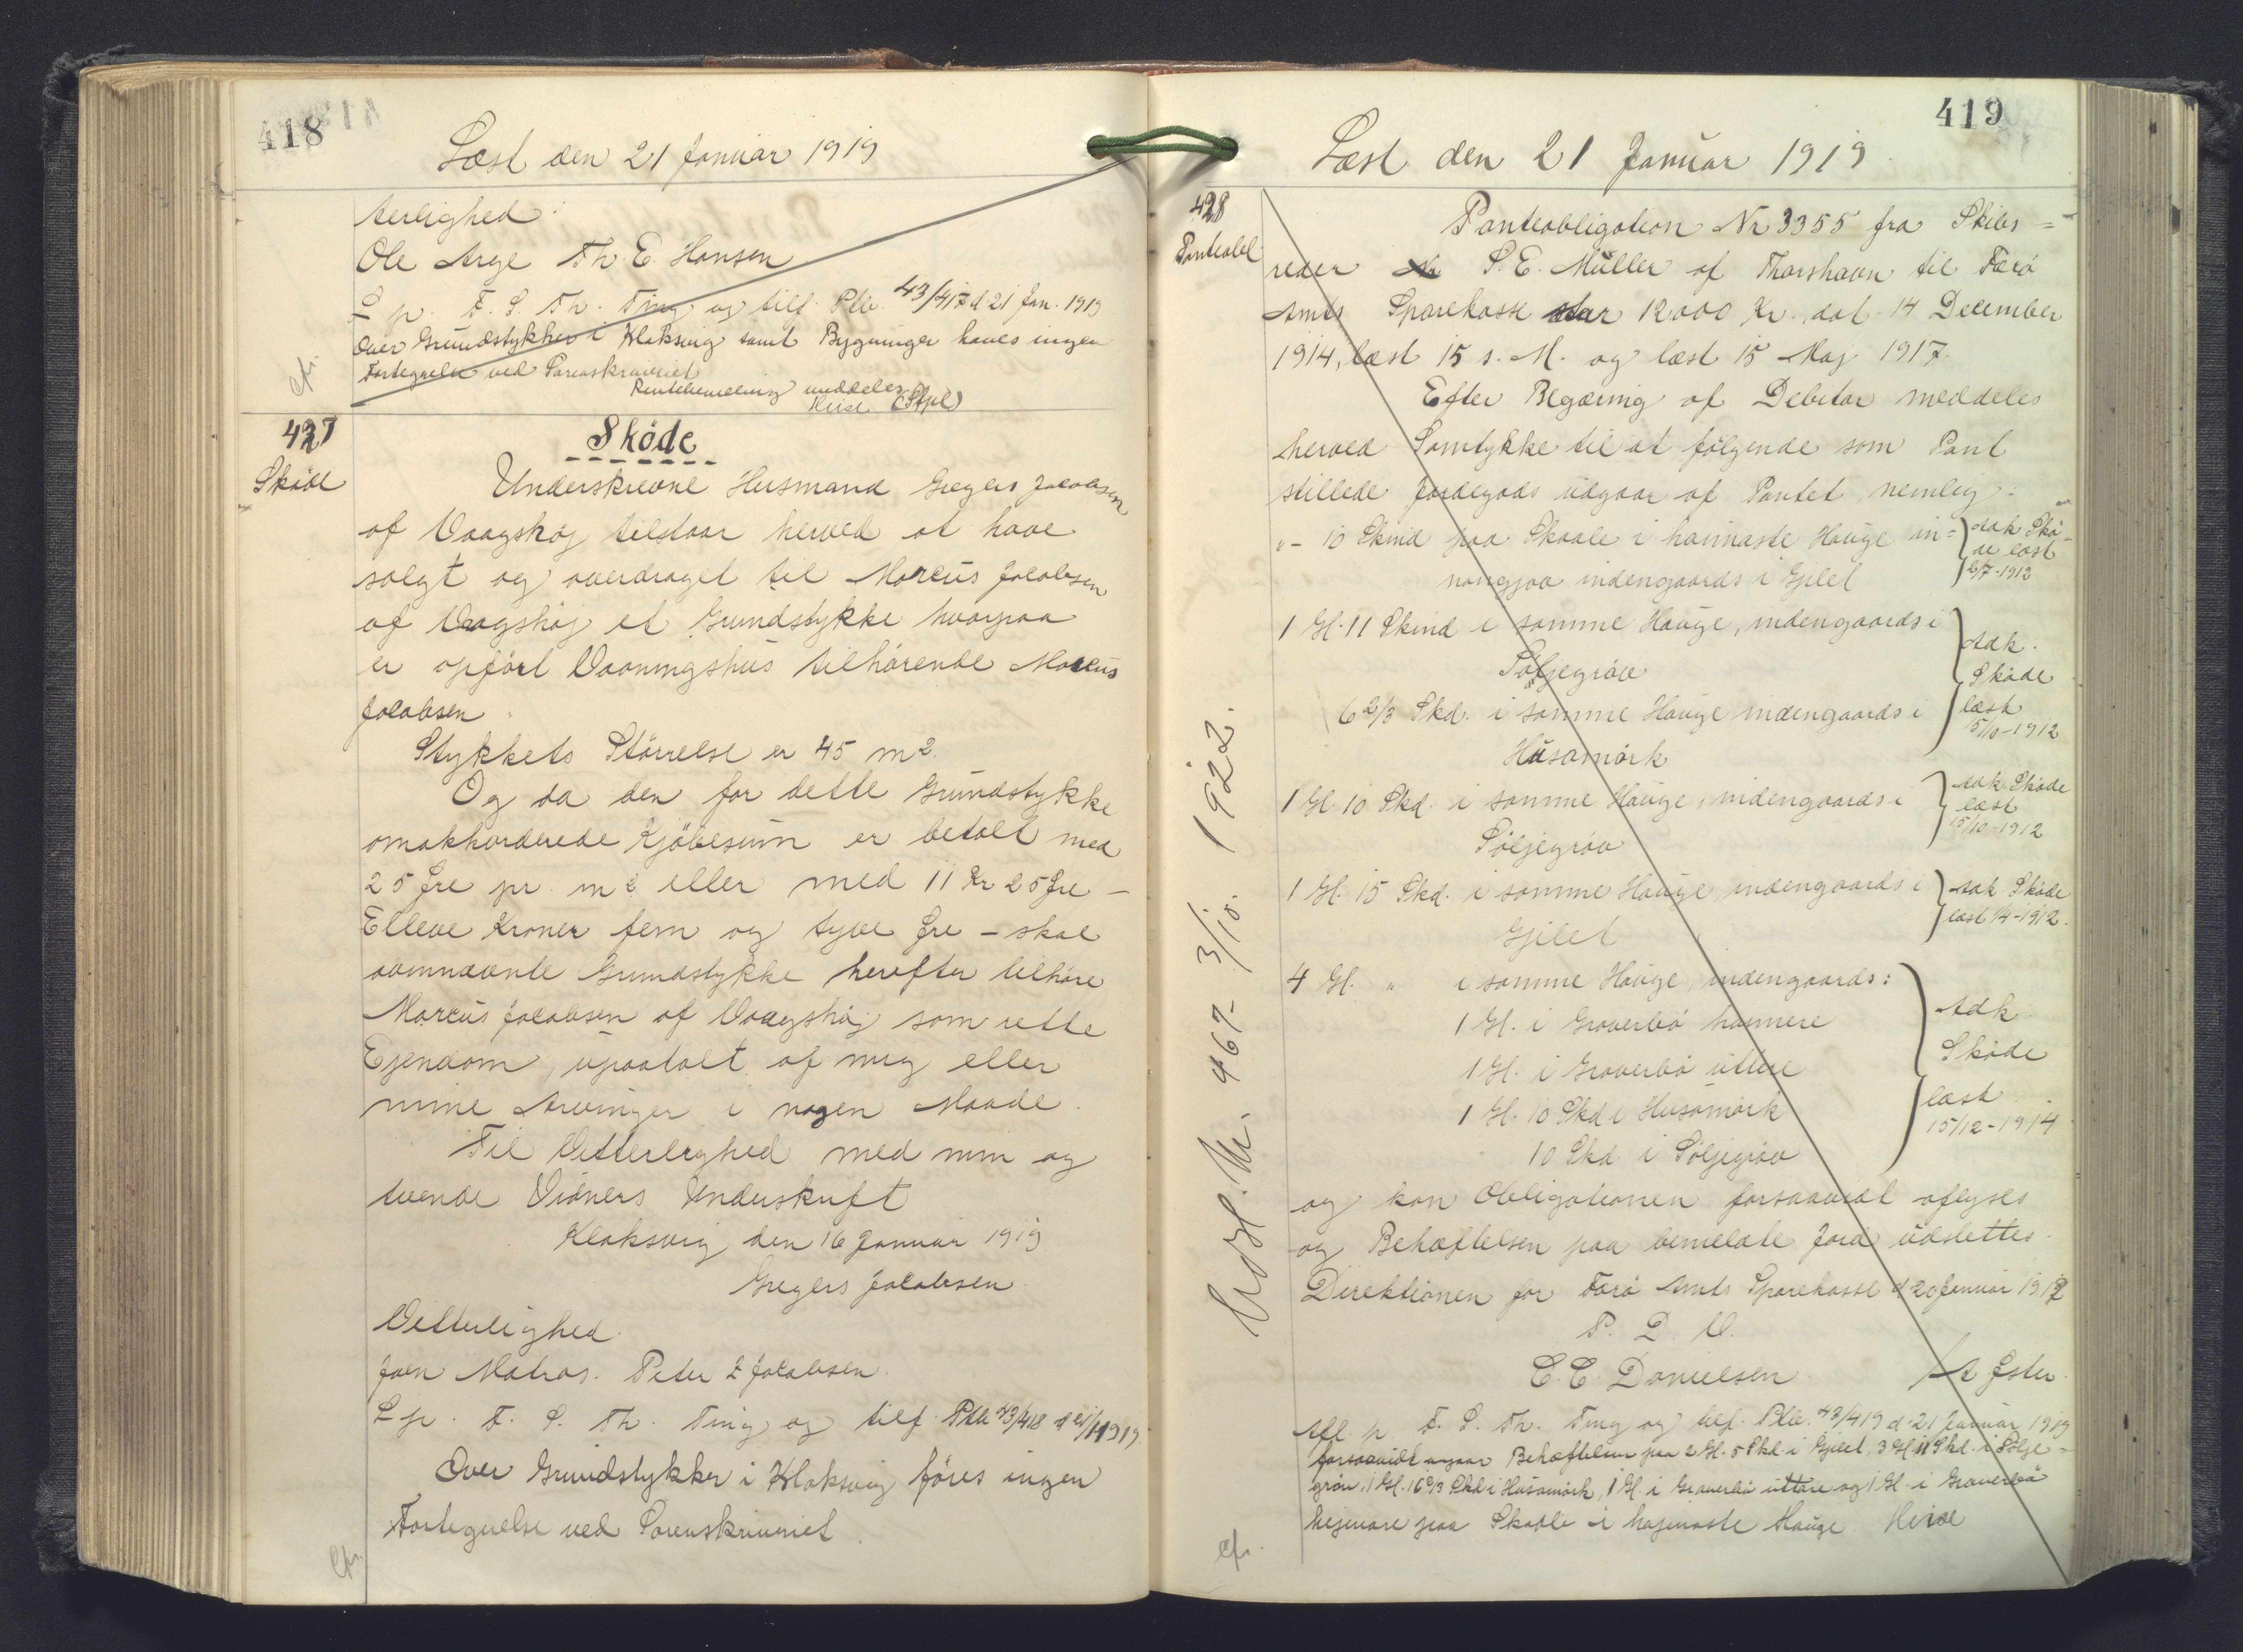 418
Læst den 21 Januar 1919
terlighed:
Ole Arge Th. E. Hansen
L p. F. S. Th. Ting og tilf. Ptb 43/417 d 21 Jan. 1919
Over Grundstykker i Klaksvig samt Bygninger haves ingen
Fortegnelse ved Sorenskriveriet
Rentebemelding meddeles
Heise (Stpl)
cfr.
427
Sköde
Sköde
Underskrevne Husmand Gregers Jacobsen
af Vaagshøj tilstaar herved at have
solgt og overdraget til Marcus Jacobsen
af Vaagshøj et Grundstykke hvorpaa
er opført Vaaningshus tilhörende Marcus
Jacobsen.
Stykkets Störrelse er 45 m2.
Og da den for dette Grundstykke
omakkorderede Kjöbesum er betalt med
25 Øre pr. m2 eller med 11 Kr 25 Øre –
Elleve Kroner fem og tyve Øre – skal
ovennævnte Grundstykke herefter tilhöre
Marcus Jacobsen af Vaagshøj som rette
Ejendom, upaatalt af mig eller
mine Arvinger i nogen Maade.
Til Vitterlighed med min og
tvende Vidners Underskrift
Klaksvig den 16 Januar 1919
Gregers Jacobsen.
Vitterlighed.
Joen Matras. Peter Z Jacobsen.
L p. F. S. Th. Ting og tilf. Ptb 43/418 d 21/1 1919
Over Grundstykker i Klaksvig föres ingen
Fortegnelse ved Sorenskriveriet.
cfr.
419
Læst den 21 Januar 1919.
428
Panteobl.
Panteobligation Nr 3355 fra Skibs=
reder S. E. Müller af Thorshavn til Færö
Amts Sparekasse stor 12000 Kr., dat. 14 December
1914, læst 15 s. M. og læst 15 Maj 1917.
Efter Begæring af Debitor meddeles
herved Samtykke til at følgende som Pant
stillede Jordegods udgaar af Pantet, nemlig:
"– 10 Skind paa Skaale i havnaste Hauge in=
nangjov indengaards i Gjilet
adk. Skö-
de læst
2/7-1912
1 Gl. 11 Skind i samme Hauge, indengaards i
Söljegröv
6 2/3 Skd. i samme Hauge indengaards i
Húsamörk
adk.
Sköde
læst
15/10-1912
1 Gl. 10 Skd. i samme Hauge, indengaards i
Söljegröv
adk Sköde
læst
15/10-1912
1 Gl. 15 Skd. i samme Hauge, indengaards i
Gjilet
adk Sköde
læst 1/4-1912.
4 Gl. " i samme Hauge, indengaards:
1 Gl. i Graverbö havnere
1 Gl. i Graverbö uttere
1 Gl. 10 Skd i Husamörk
10 Skd i Söljegröv
adk.
Sköde
læst
15/12-1914
og kan Obligationen forsaavidt aflyses
og Behæftelsen paa bemeldte Jord udslettes.
Direktionen for Færö Amts Sparekasse d 20 Januar 1919
P. D. V.
C. C. Danielsen. / A Øster.
Afl. p. F. S. Th. Ting og tilf. Ptb. 43/419 d. 21 Januar 1919
forsaavidt angaar Behæftelsen paa 2 Gl. 5 Skd. i Gjilet, 3 Gl 11 Skd. i Sölje=
gröv, 1 Gl. 16 2/3 Skd i Husamörk, 1 Gl. i Graverbö uttare og 1 Gl. i Graverbö
hejmare paa Skaale i hajmaste Hauge Heise
cfr.
Nr. 467- 3/10. 1922.